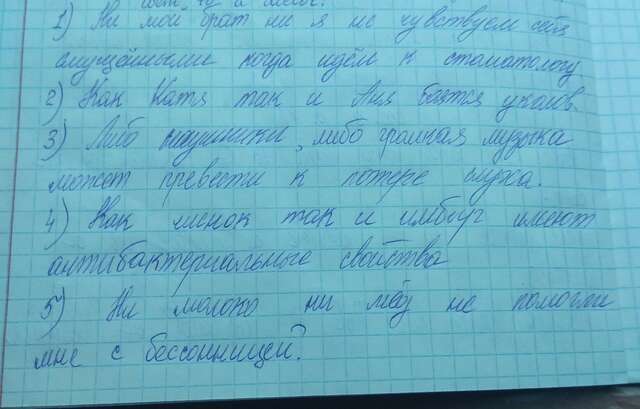 1) Ни мой брат ни я не чувствуем себя
смущёнными когда идём к стоматологу
2) Как Катя так и Аня боятся уколов.
3) Либо наушники, либо громкая музыка
может превести к потере слуха.
4) Как чеснок так и имбирг имеют
антибактериальные свойства
5) Ни молоко ни мёд не помогли
мне с бессонницей?